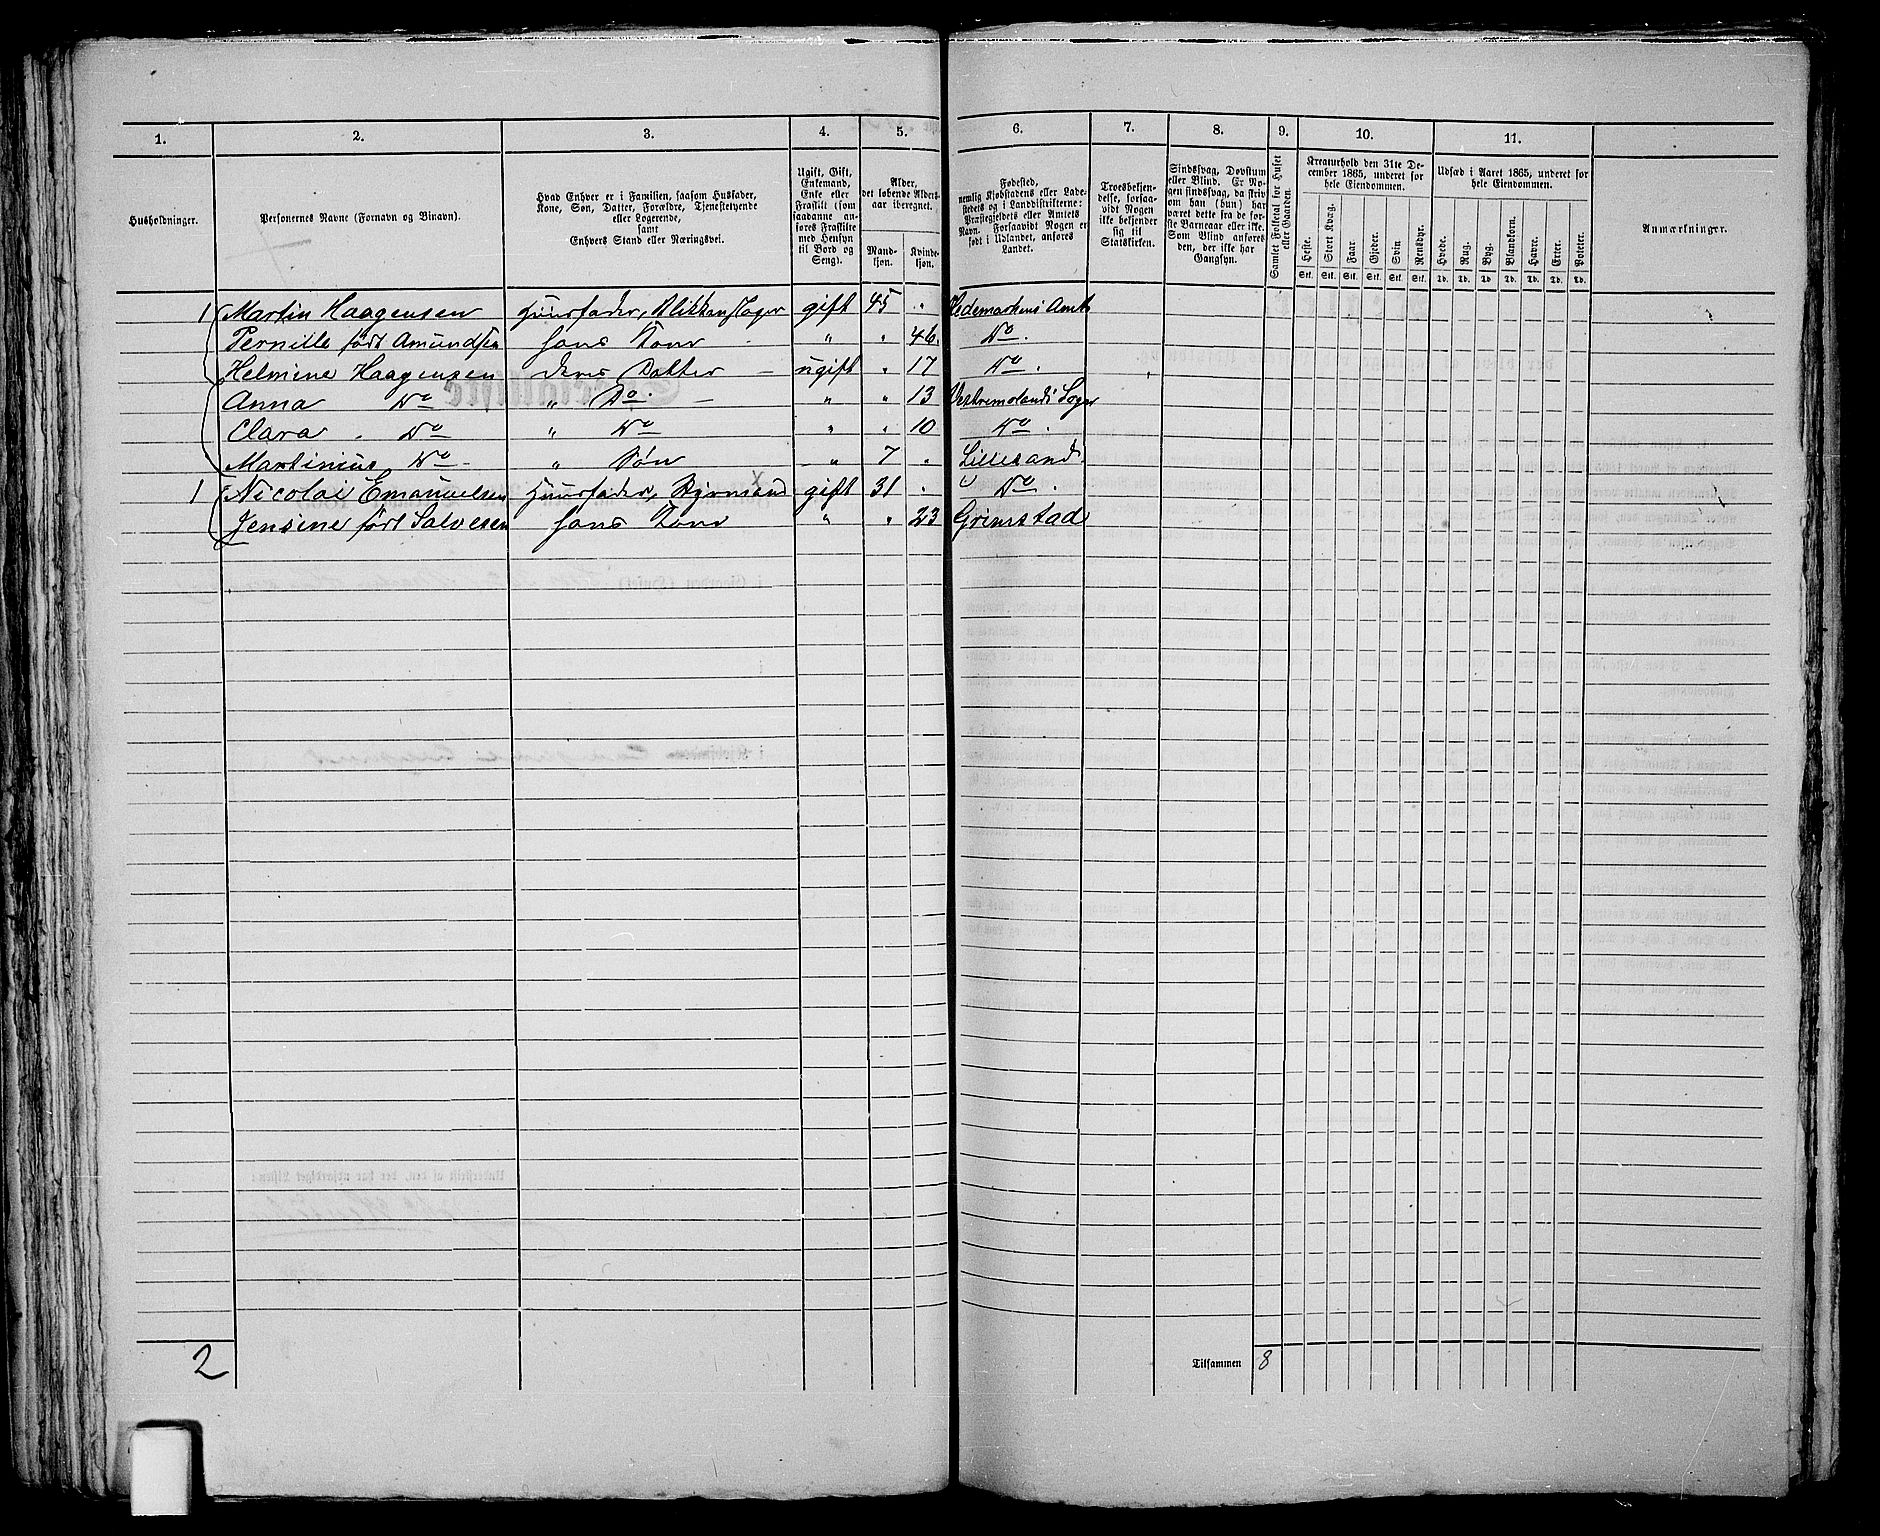 1. 2. 3. 4. 5. 6. 7. 8. 9. 10. 11.
Husholdninger.
Personernes Navne (Fornavn og Binavn).
Hvad Enhver er i Familien, saasom Husfader,
Kone, Søn, Datter, Forældre, Tjenestetyende
eller Logerende,
samt
Enhvers Stand eller Næringsvei.
Ugift, Gift,
Enkemand,
Enke eller
Fraskilt (som
saadanne an-
føres Fraskilte
med Hensyn
til Bord og
Seng).
Alder,
det løbende Alders-
aar iberegnet.
Mand-
kjøn.
Kvinde-
kjøn.
Fødested,
nemlig Kjøbstadens eller Lade-
stedets og i Landdistrikterne:
Præstegjeldets eller Amtets
Navn. Forsaavidt Nogen er
født i Udlandet, anføres
Landet.
Troesbekjen-
delse, forsaa-
vidt Nogen
ikke bekjender
sig til
Statskirken.
Sindssvag, Døvstum
eller Blind. Er No-
gen sindssvag, da skriv
om han (hun) har
været dette fra de før-
ste Barneaar eller ikke.
Som Blind anføres
den, der ikke har
Gangsyn.
Samlet Folketal for Huset
eller Gaarden.
Kreaturhold den 31te De-
cember 1865, underet for
hele Eiendommen.
Heste. Stort Kvæg. Faar. Gjeder. Svin. Rensdyr.
Stk. Stk. Stk. Stk. Stk. Stk.
Udsæd i Aaret 1865, underet for
hele Eiendommen.
Hvede. Rug. Byg. Blandkorn. Havre. Erter. Poteter.
Td. Td. Td. Td. Td. Td. Td.
Anmærkninger.
1 Martin Haagensen Huusfader, Blikkenslager gift 45 " Hedemarkens Amt
Pernille født Amundsen hans Kone " " 46. Do.
Helmine Haagensen deres Datter ugift " 17 Do.
Anna Do " Do. " " 13
Clara. Do " Do " " 10 Do.
Martinius Do " Søn " 7 " Lillesand.
1 Nicolai Emanuelsen Huusfader, gift 31 " Do.
Jensine født Salvesen hans Kone " " 23 Grimstad
2
Tilsammen 8